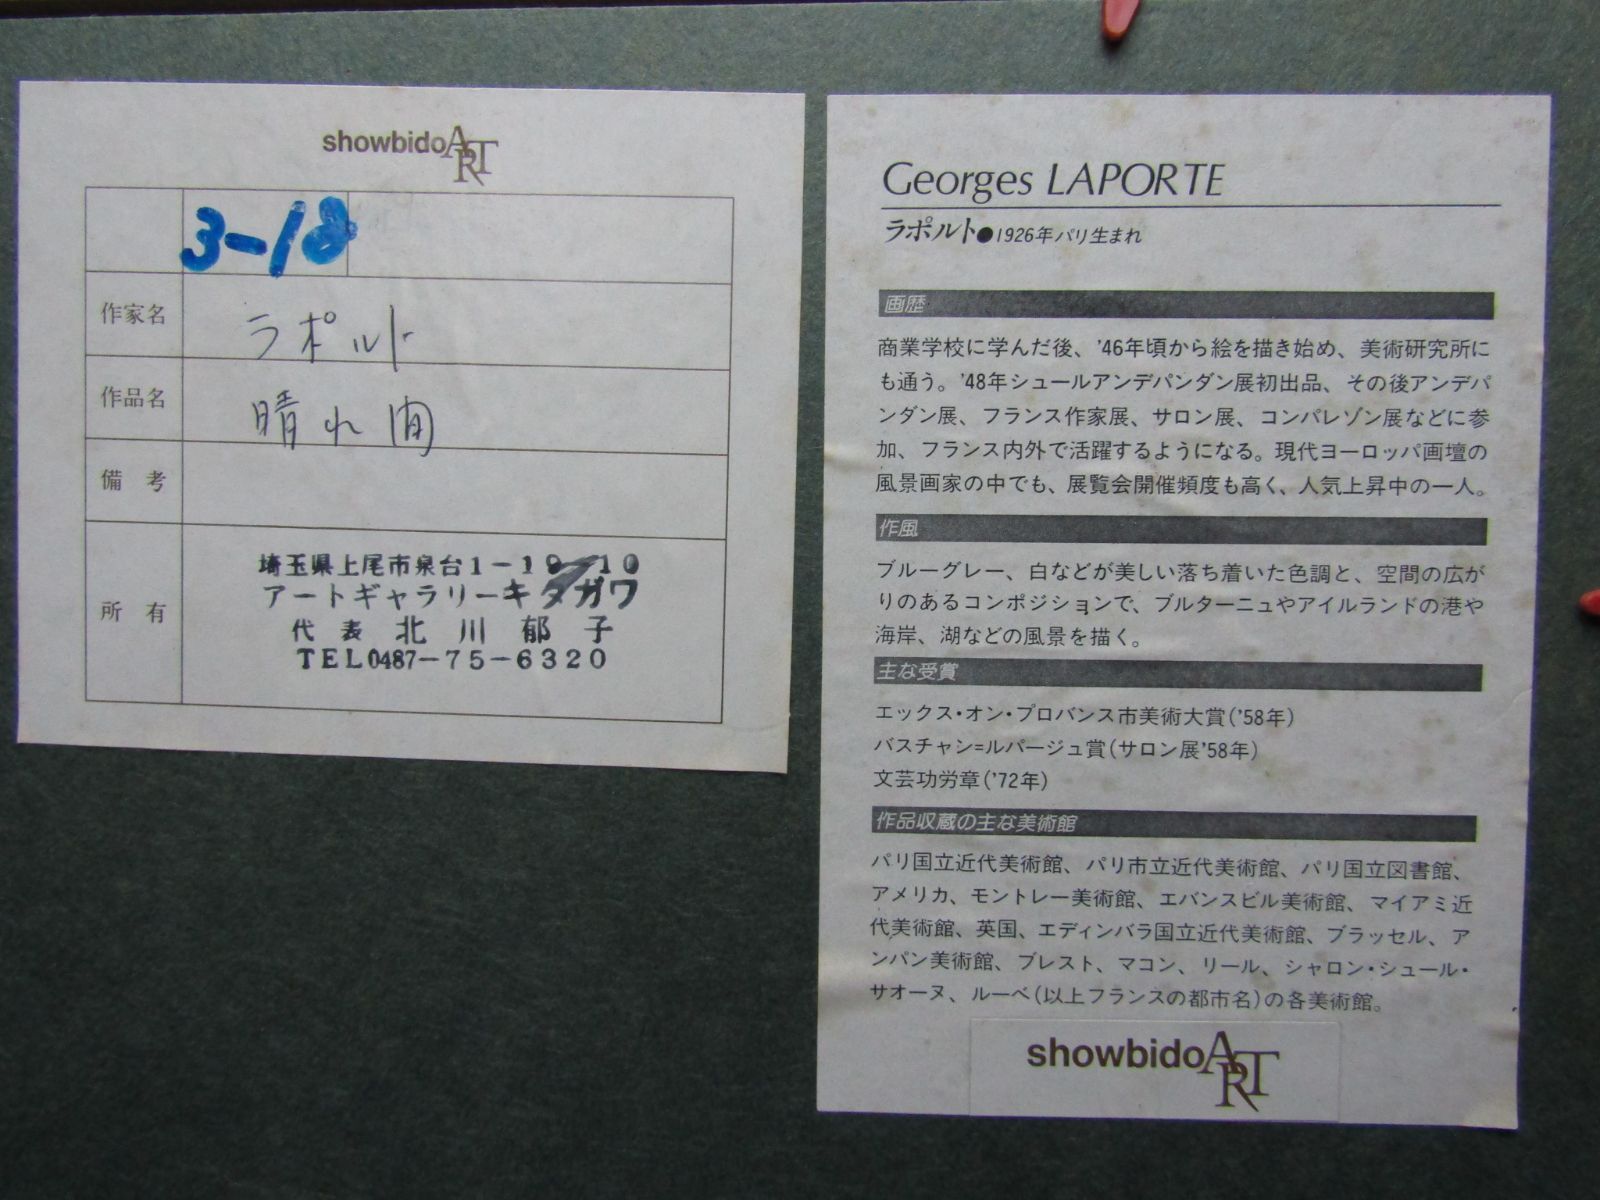 showbido ART
3-18
作家名 ラポルト
作品名 晴れ間
備 考
所 有
埼玉県上尾市泉台1-19-10
アートギャラリーキタガワ
代表 北川 郁子
TEL0487-75-6320
Georges LAPORTE
ラポルト●1926年パリ生まれ
画歴
商業学校に学んだ後、'46年頃から絵を描き始め、美術研究所に
も通う。'48年シュールアンデパンダン展初出品、その後アンデパ
ンダン展、フランス作家展、サロン展、コンパレゾン展などに参
加、フランス内外で活躍するようになる。現代ヨーロッパ画壇の
風景画家の中でも、展覧会開催頻度も高く、人気上昇中の一人。
作風
ブルーグレー、白などが美しい落ち着いた色調と、空間の広が
りのあるコンポジションで、ブルターニュやアイルランドの港や
海岸、湖などの風景を描く。
主な受賞
エックス・オン・プロバンス市美術大賞('58年)
バスチャン=ルパージュ賞(サロン展'58年)
文芸功労章('72年)
作品収蔵の主な美術館
パリ国立近代美術館、パリ市立近代美術館、パリ国立図書館、
アメリカ、モントレー美術館、エバンスビル美術館、マイアミ近
代美術館、英国、エディンバラ国立近代美術館、ブラッセル、ア
ンパン美術館、ブレスト、マコン、リール、シャロン・シュール・
サオーヌ、ルーベ(以上フランスの都市名)の各美術館。
showbido ART